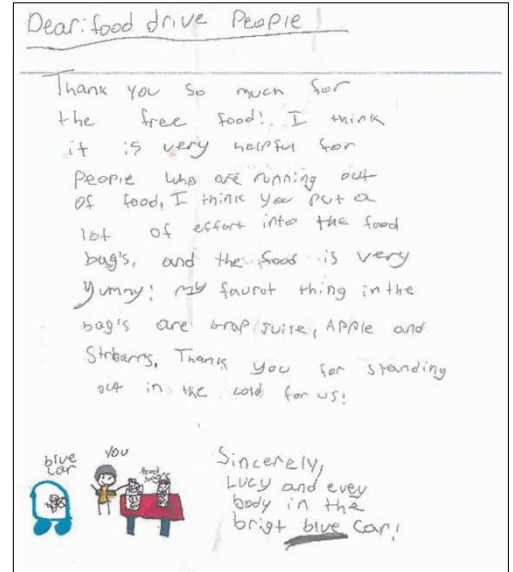 Dear: food drive People
Thank you so much for
the free food! I think
it is very helpful for
People who are running out
of food, I think you put a
lot of effort into the food
bag's, and the food is very
yummy! my faurot thing in the
bag's are grap juise, APPle and
Strbarrs, Thank you for standing
out in the cold for us!
blue
car
you
food
bag's
Sincerely,
Lucy and evey
body in the
brigt blue car!